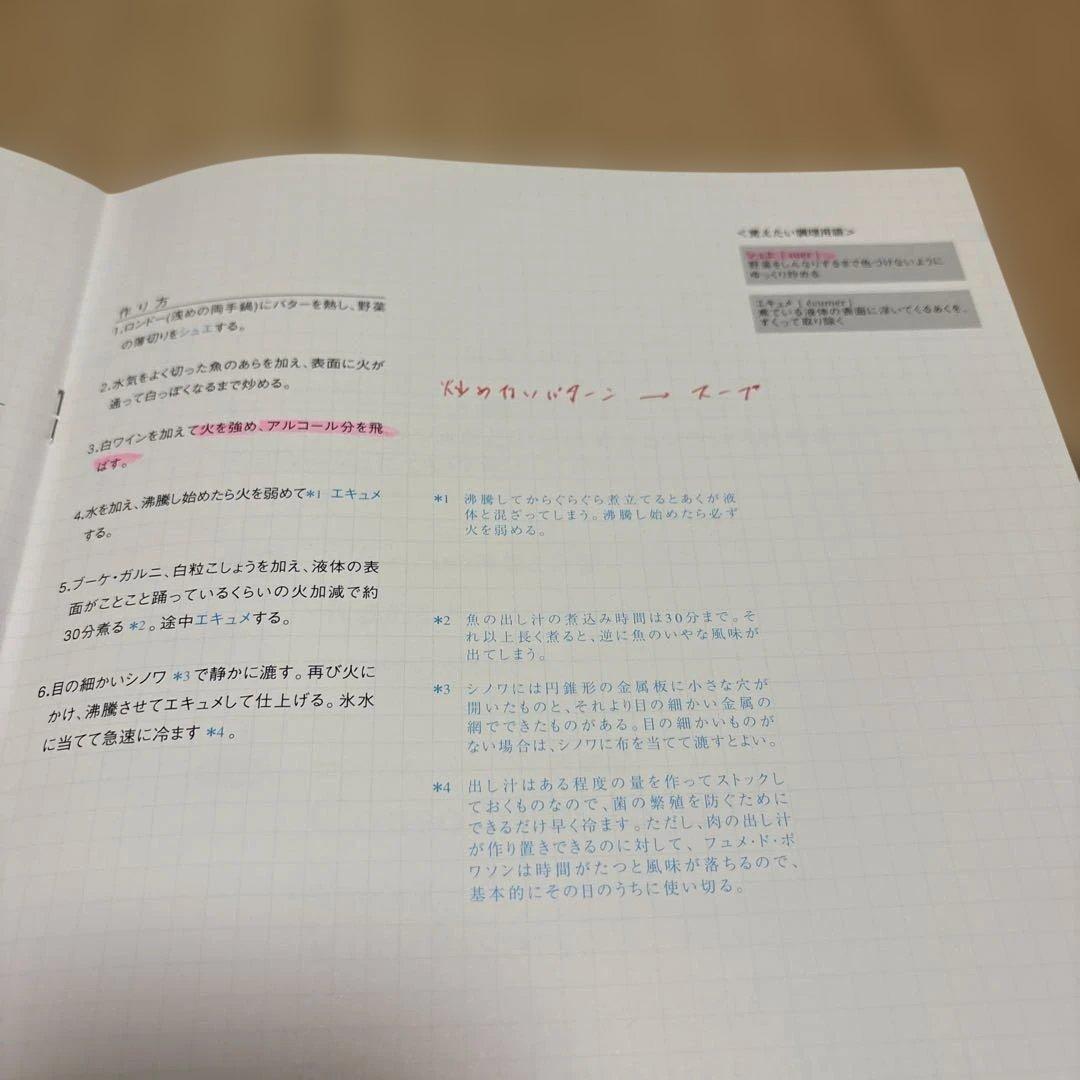 <覚えたい調理用語>
シュエ [ suer ]
野菜をしんなりするまで色づけないように
ゆっくり炒める
エキュメ [ écumer ]
煮ている液体の表面に浮いてくるあくを、
すくって取り除く
作り方
1.ロンドー(浅めの両手鍋)にバターを熱し、野菜
の薄切りをシュエする。
2.水気をよく切った魚のあらを加え、表面に火が
通って白っぽくなるまで炒める。
炒めないパターン → スープ
3.白ワインを加えて火を強め、アルコール分を飛
ばす。
4.水を加え、沸騰し始めたら火を弱めて*1 エキュメ
する。
5.ブーケ・ガルニ、白粒こしょうを加え、液体の表
面がことこと踊っているくらいの火加減で約
30分煮る*2。途中エキュメする。
6.目の細かいシノワ*3で静かに漉す。再び火に
かけ、沸騰させてエキュメして仕上げる。氷水
に当てて急速に冷ます*4。
*1 沸騰してからぐらぐら煮立てるとあくが液
体と混ざってしまう。沸騰し始めたら必ず
火を弱める。
*2 魚の出し汁の煮込み時間は30分まで。そ
れ以上長く煮ると、逆に魚のいやな風味が
出てしまう。
*3 シノワには円錐形の金属板に小さな穴が
開いたものと、それより目の細かい金属の
網でできたものがある。目の細かいものが
ない場合は、シノワに布を当てて漉すとよい。
*4 出し汁はある程度の量を作ってストックし
ておくものなので、菌の繁殖を防ぐために
できるだけ早く冷ます。ただし、肉の出し汁
が作り置きできるのに対して、フュメ・ド・ポ
ワソンは時間がたつと風味が落ちるので、
基本的にその日のうちに使い切る。